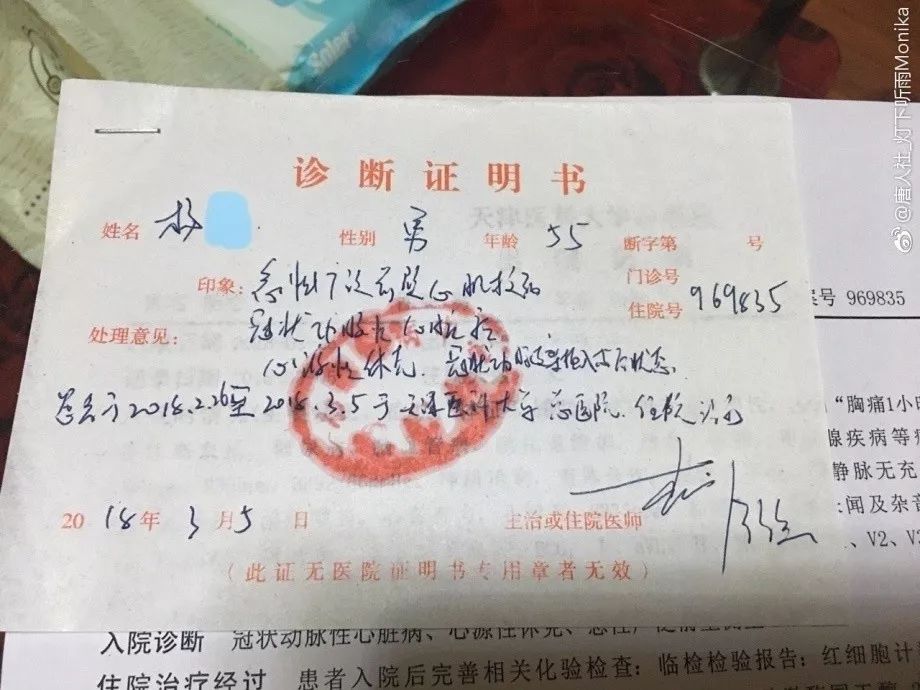 @唐人社_灯下听雨Monika
诊断证明书
姓名 杨 性别 男 年龄 55 断字第 号
印象: 急性广泛前壁心肌梗死 门诊号
住院号 969835
处理意见: 冠状动脉
心源性休克 冠状动脉支架植入术后状态
患者于2018.2.26至2018.3.5于天津医科大学总医院住院治疗
2018年3月5日 主治或住院医师
(此证无医院证明书专用章者无效)
案号 969835
“胸痛1小时
腺疾病等病
静脉无充
闻及杂音
、V2、V3
入院诊断 冠状动脉性心脏病、心源性休克、急性广泛前壁
住院治疗经过 患者入院后完善相关化验检查:临检检验报告:红细胞计